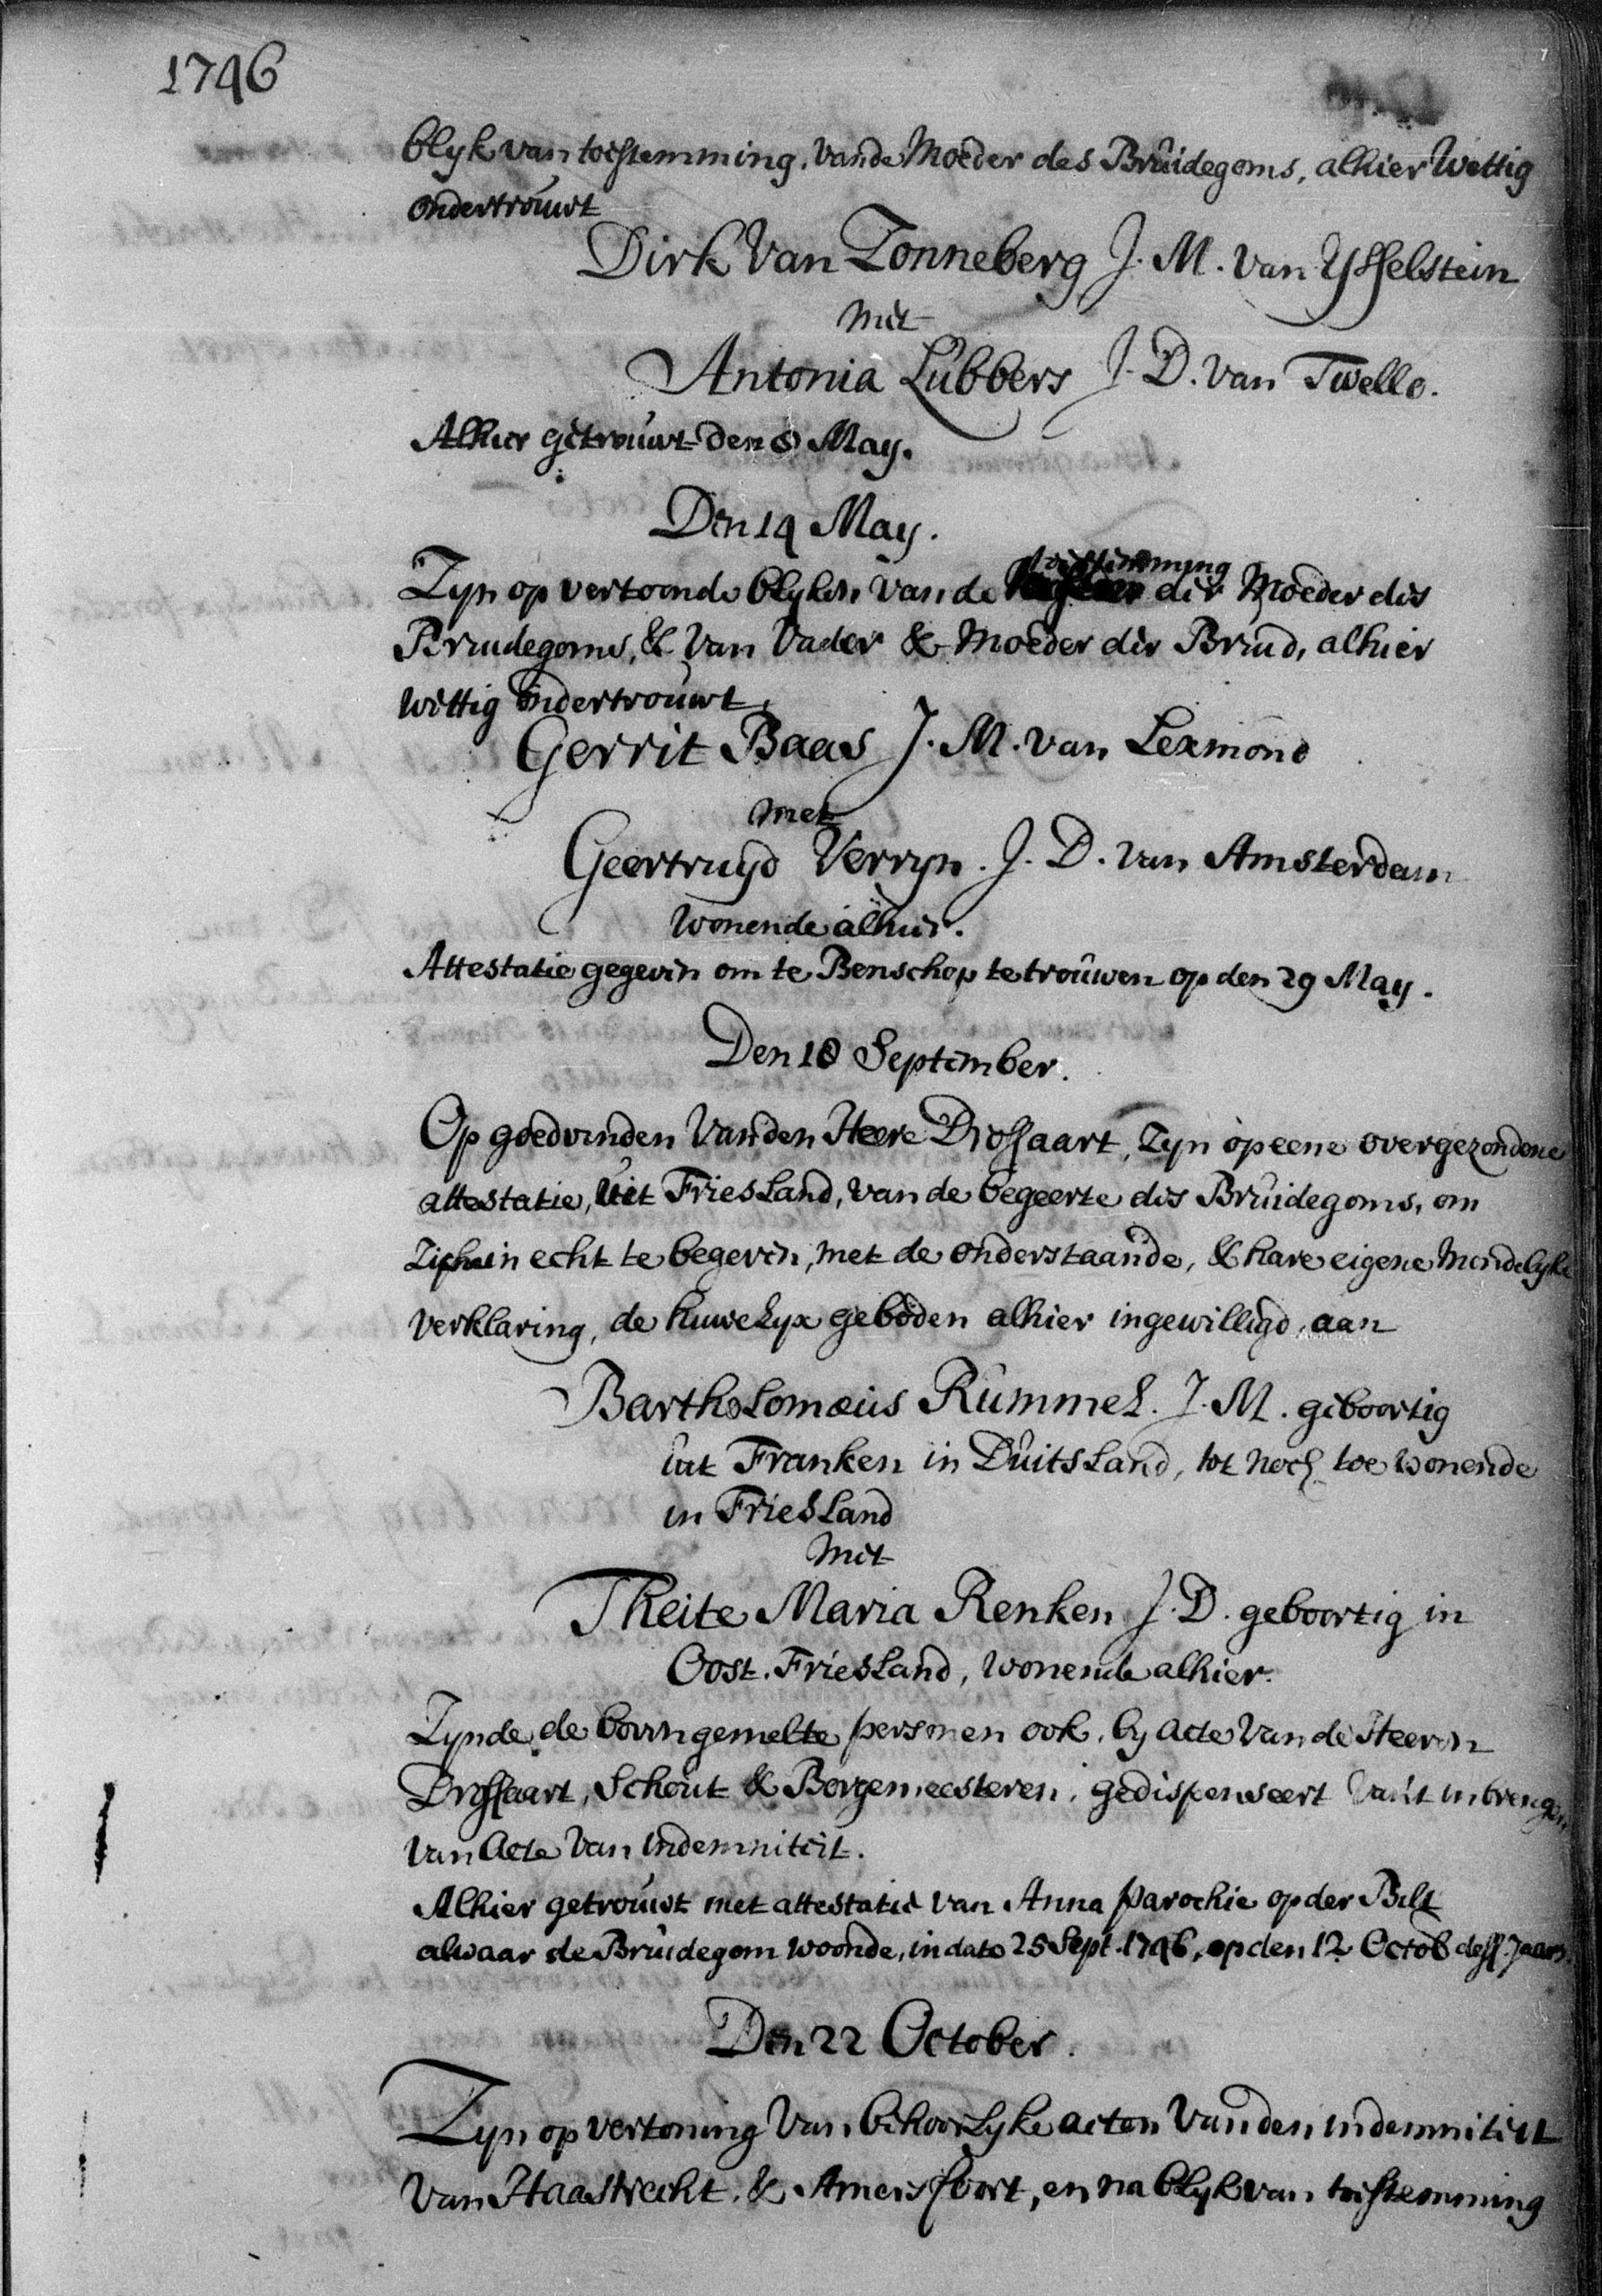 1746
blyk van toestemming, van de Moeder des Bruidegoms, alhier Wettig
ondertrouwt
Dirk Van Zonneberg J. M. van Ysselstein
met
Antonia Lubbers J. D. van Twello.
Alhier getrouwt den 8 May.
Den 14 May.
Zyn op vertoonde blyken van de toestemming der Moeder des
Bruidegoms, & van Vader & Moeder der Bruid, alhier
wettig ondertrouwt,
Gerrit Baas J. M. van Lexmond
met
Geertruyd Verryn. J. D. van Amsterdam
wonende alhier.
Attestatie gegeven om te Benschop te trouwen op den 29 May.
Den 18 September.
Op goedvinden van den Heere Drossaart, zyn op eene overgezondene
attestatie, uit Friesland, van de begeerte des Bruidegoms, om
zich in echt te begeven, met de onderstaande, & hare eigene mondelyke
verklaring, de huwelyx geboden alhier ingewilligd, aan
Bartholomæus Rummel. J. M. geboortig
uit Franken in Duitsland, tot noch toe wonende
in Friesland
met
Theite Maria Renken J. D. geboortig in
Oost-Friesland, wonende alhier.
Zynde de bovengemelte personen ook, by acte van de Heeren
Drossaart, Schout & Borgemeesteren, gedispenseert van't inbrengen
van Acte van Indemniteit.
Alhier getrouwt met attestatie van Anna Parochie op der Bilt
alwaar de Bruidegom woonde, in dato 25 Sept. 1746, op den 12 Octob dess. Jaars.
Den 22 October.
Zyn op vertoning van behoorlyke acten van den indemniteit
van Haastrecht, & Amersfoort, en na blyk van toestemming